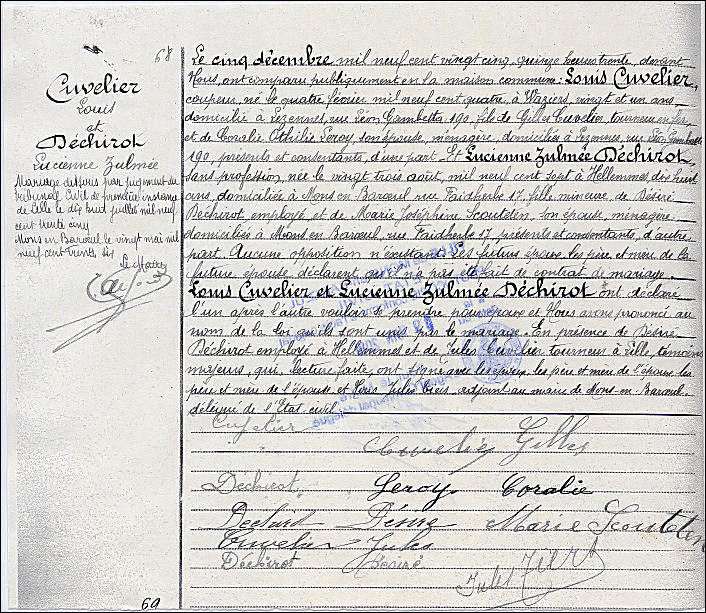 68
Cuvelier
Louis
et
Déchirot
Lucienne Zulmée
Mariage dissous par jugement du
tribunal Civil de première instance
de Lille le dix huit juillet mil neuf
cent trente cinq
Mons en Baroeul le vingt mai mil
neuf cent trente six
Le Maire
Le cinq décembre mil neuf cent vingt cinq, quinze heures trente, devant
Nous, ont comparu publiquement en la maison commune: Louis Cuvelier,
coupeur, né le quatre février mil neuf cent quatre, à Waziers, vingt et un ans,
domicilié à Lezennes, rue Léon Gambetta 190, fils de Gilles Cuvelier, tourneur en fer,
et de Coralie Othilie Leroy, son épouse, ménagère, domiciliés à Lezennes, rue Léon Gambetta
190, présents et consentants, d'une part. Et Lucienne Zulmée Déchirot,
sans profession, née le vingt trois août, mil neuf cent sept à Hellemmes, dix huit
ans, domiciliée à Mons en Baroeul rue Faidherbe 17, fille mineure de Désiré
Déchirot, employé et de Marie Joséphine Scoutteten, son épouse, ménagère
domiciliés à Mons en Baroeul, rue Faidherbe 17, présents et consentants, d'autre
part. Aucune opposition n'existant. Les futurs époux, les père et mère de la
future épouse, déclarent qu'il n'a pas été fait de contrat de mariage.
Louis Cuvelier et Lucienne Zulmée Déchirot ont déclaré
l'un après l'autre vouloir se prendre pour époux et Nous avons prononcé au
nom de la loi qu'ils sont unis par le mariage. En présence de Désiré
Déchirot employé à Hellemmes et de Jules Cuvelier tourneur à Lille, témoins
majeurs, qui, lecture faite, ont signé avec les époux, les père et mère de l'époux, les
père et mère de l'épouse et Nous, Jules adjoint au maire de Mons en Baroeul,
délégué de l'Etat civil.
Cuvelier
Cuvelier Gilles
Déchirot Leroy Coralie
Déchirot Désiré Marie Scoutteten
Cuvelier Jules
Déchirot Désiré
Jules
69